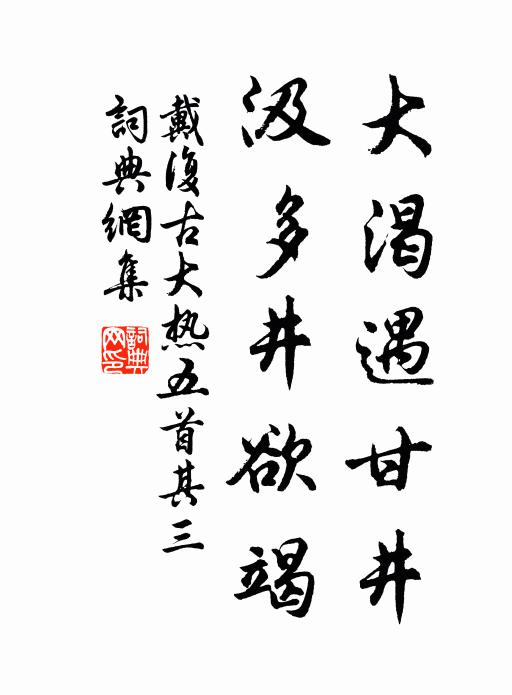 大渴遇甘井
汲多井欲竭
戴復古大热五首其三
詞典網集
詞典网印